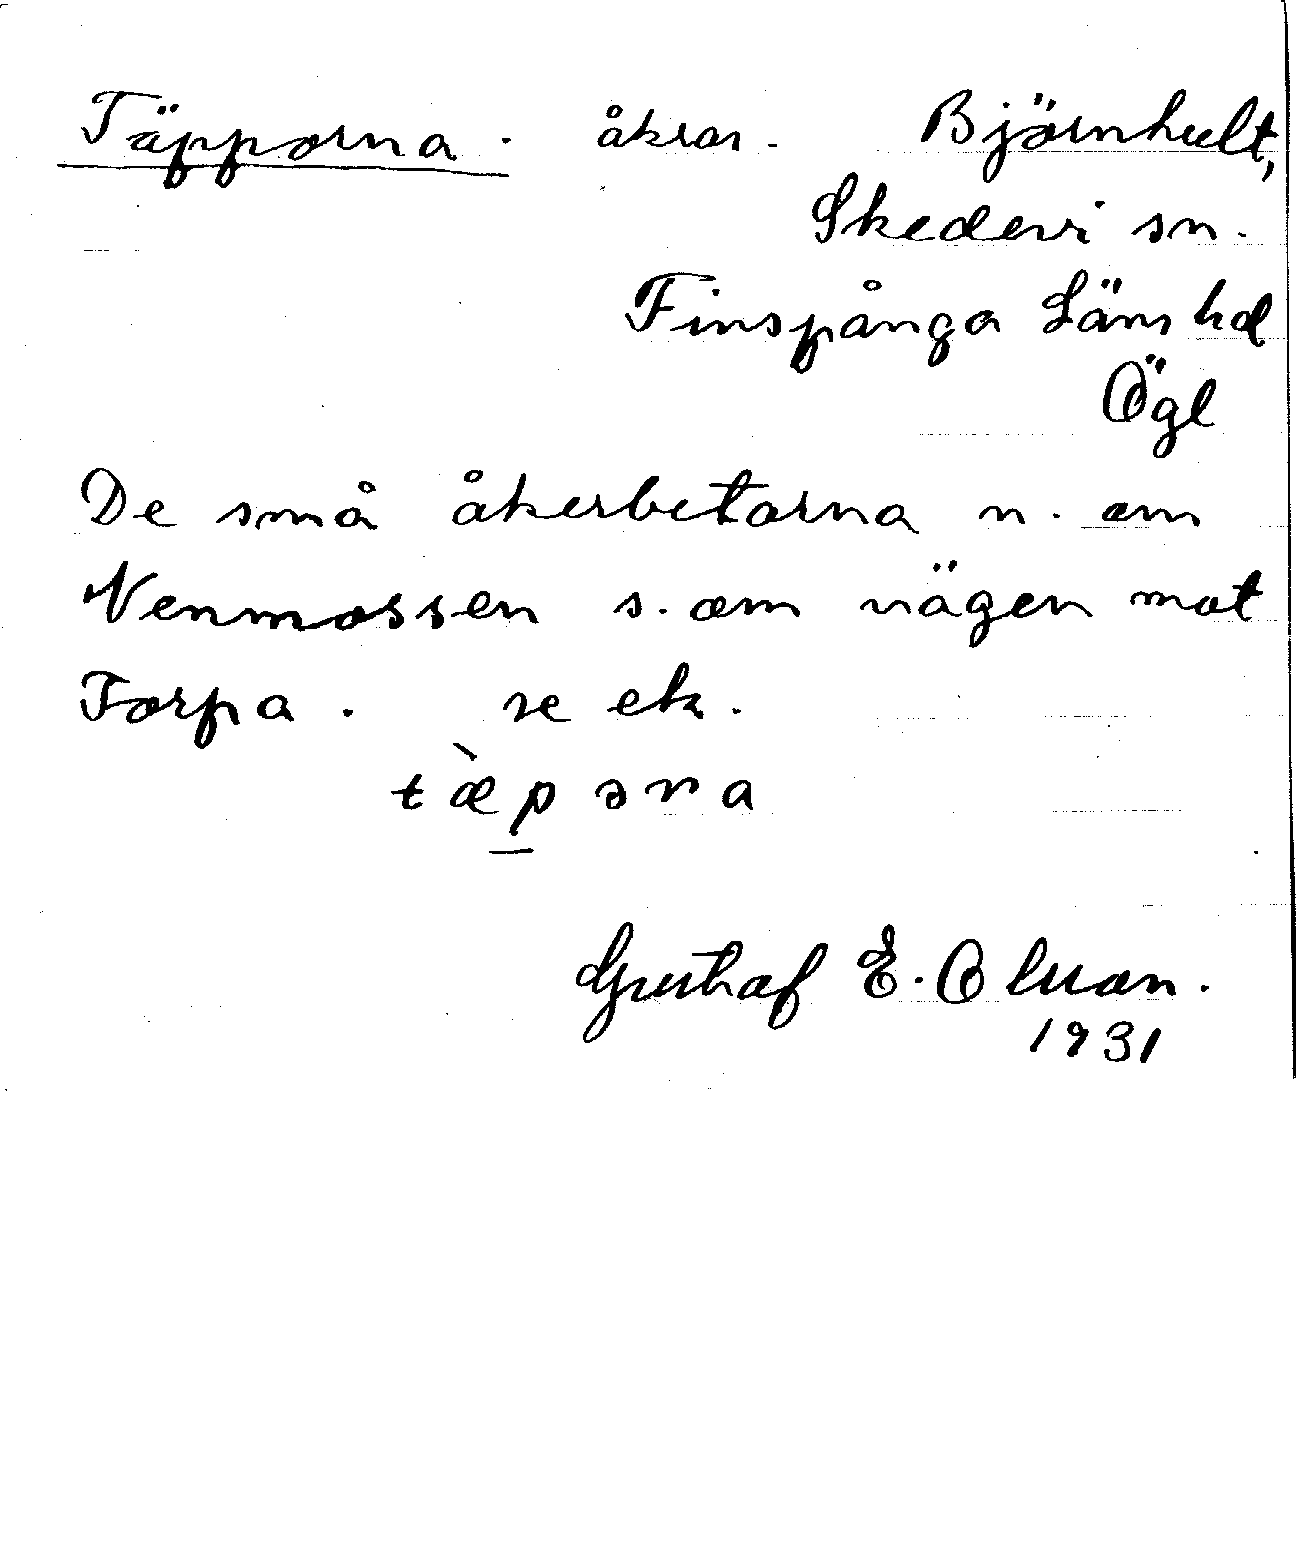 Täpporna. åkrar. Björnhult,
Skedevi sn.
Finspånga Läns hd
Ögl
De små åkerbetarna n. om
Venmossen s. om vägen mot
Torpa. se ek.
tæ̀pəra
Gustaf E. Olsson.
1931